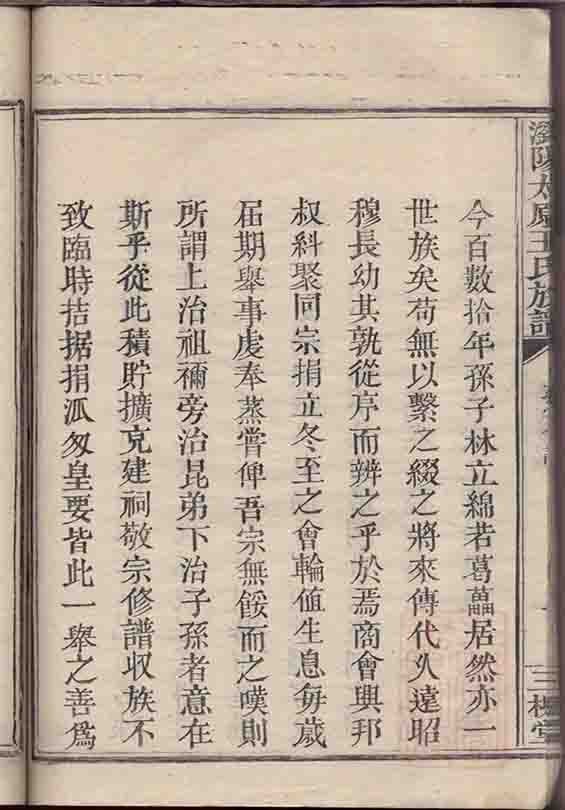 瀏陽太原王氏族譜
三槐堂
今百數拾年孫子林立綿若葛藟居然亦一
世族矣苟無以繫之綴之將來傳代久遠昭
穆長幼其孰從序而辨之乎於焉商會興邦
叔糾聚同宗捐立冬至之會輪值生息每歲
屆期舉事虔奉蒸嘗俾吾宗無餒而之嘆則
所謂上治祖禰旁治昆弟下治子孫者意在
斯乎從此積貯擴充建祠敬宗修譜收族不
致臨時拮据捐派匆皇要皆此一舉之善爲